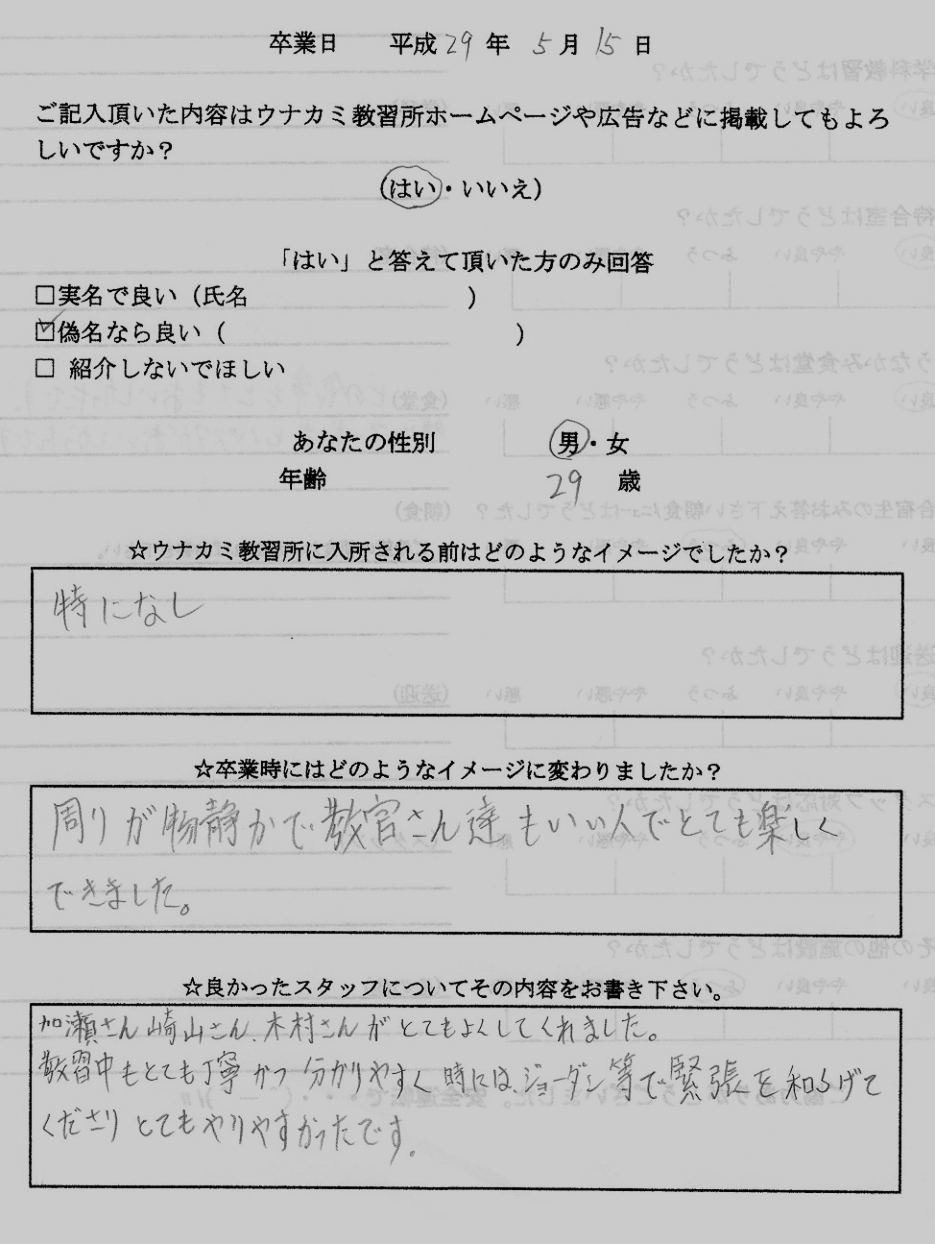 卒業日 平成29年 5月15日
ご記入頂いた内容はウナカミ教習所ホームページや広告などに掲載してもよろ
しいですか？
(はい・いいえ)
「はい」と答えて頂いた方のみ回答
□実名で良い（氏名 ）
☑偽名なら良い（ ）
□ 紹介しないでほしい
あなたの性別 男・女
年齢 29 歳
☆ウナカミ教習所に入所される前はどのようなイメージでしたか？
特になし
☆卒業時にはどのようなイメージに変わりましたか？
周りが物静かで教官さん達もいい人でとても楽しく
できました。
☆良かったスタッフについてその内容をお書き下さい。
加瀬さん崎山さん、木村さんがとてもよくしてくれました。
教習中もとても丁寧かつ分かりやすく時には、ジョーダン等で緊張を和らげて
くださりとてもやりやすかったです。